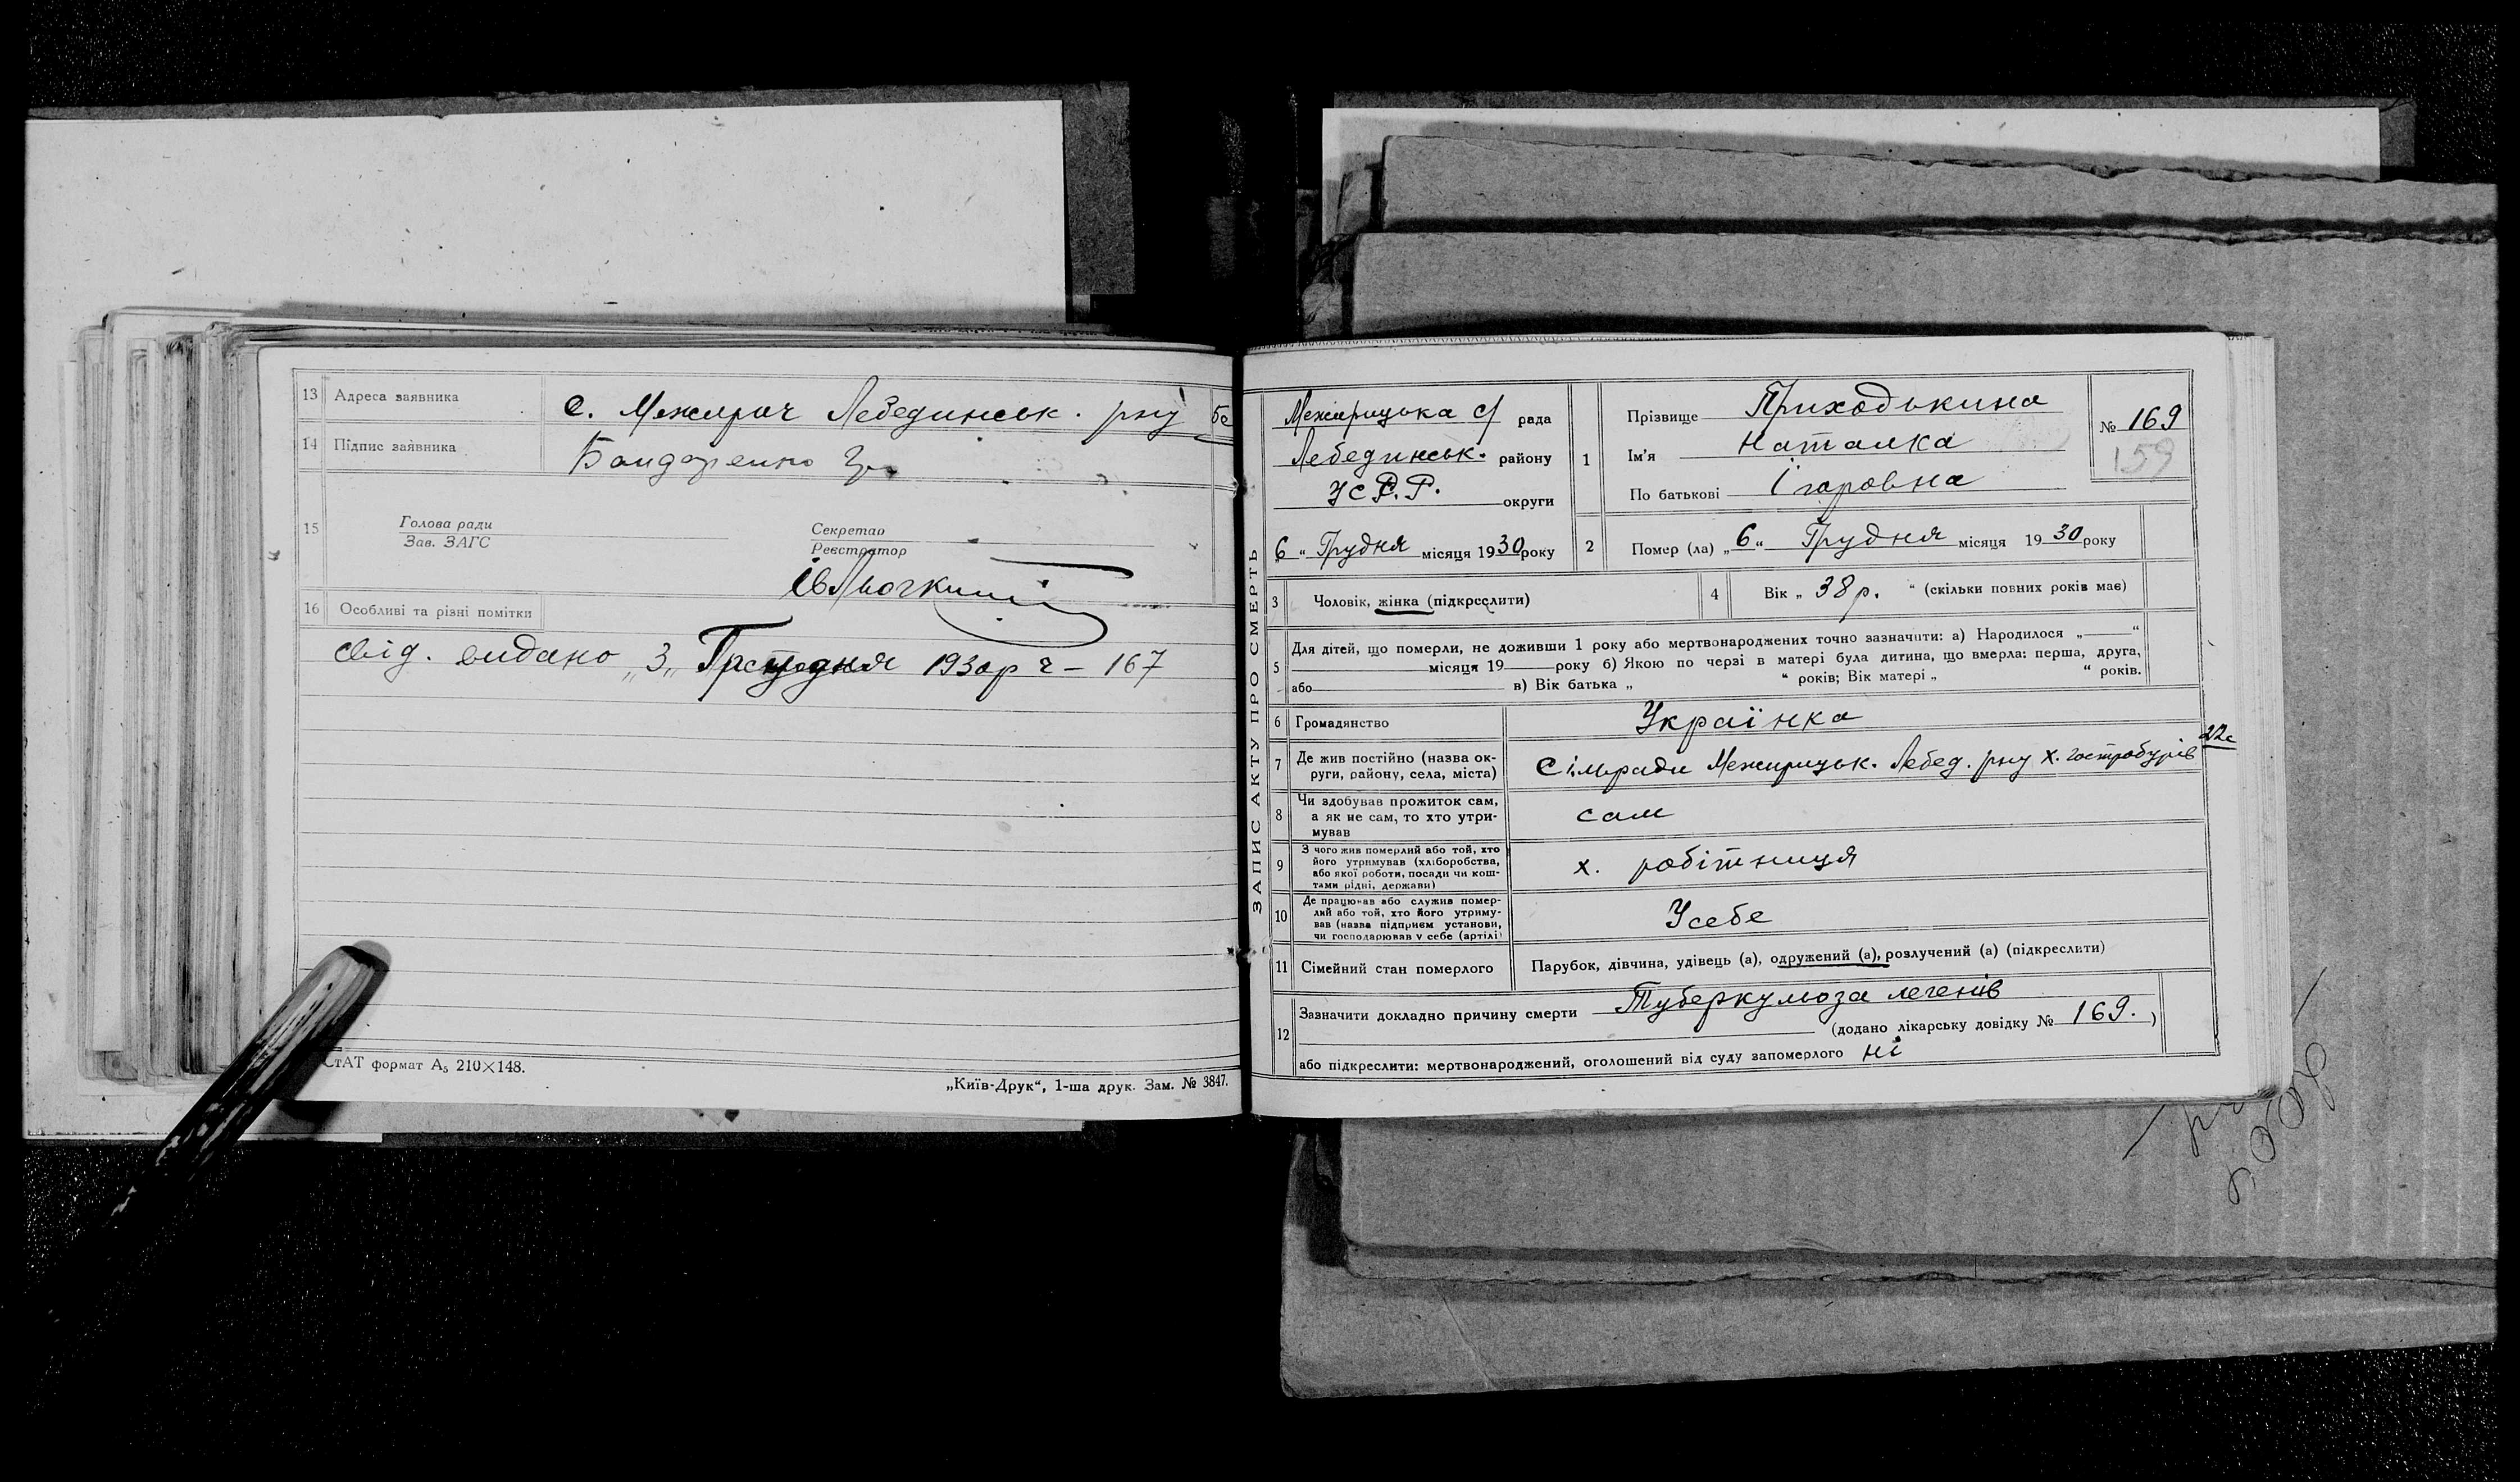 13 Адреса заявника с. Межиріч Лебединськ. р-ну
14 Підпис заявника Бондаренко
15 Голова ради Секретар
Зав. ЗАГС Реєстратор
16 Особливі та різні помітки
свід. видано „3„ Грудня 1930р ч – 167
СтАТ формат А₅ 210×148.
„Київ-Друк“, 1-ша друк. Зам. № 3847.
ЗАПИС АКТУ ПРО СМЕРТЬ
Межирицька с/ рада
Лебединськ. району
УСРР. округи
„6“ Грудня місяця 1930 року
1 Прізвище Приходькина
Ім'я Наталка
По батькові Ігаровна
№ 169
159
2 Помер (ла) „6“ Грудня місяця 1930 року
3 Чоловік, жінка (підкреслити)
4 Вік „38р.“ (скільки повних років має)
5 Для дітей, що померли, не доживши 1 року або мертвонароджених точно зазначити: а) Народилося „ “
місяця 19 року б) Якою по черзі в матері була дитина, що вмерла: перша, друга,
або в) Вік батька „ “ років; Вік матері „ “ років.
6 Громадянство Українка
7 Де жив постійно (назва ок-
руги, району, села, міста) Сільради Межирицьк. Лебед. р-ну х. Гостробурів
22с
8 Чи здобував прожиток сам,
а як не сам, то хто утри-
мував сам
9 З чого жив померлий або той, хто
його утримував (хліборобства,
або якої роботи, посади чи кош-
тами рідні, держави) х. робітниця
10 Де працював або служив помер-
лий або той, хто його утриму-
вав (назва підприєм установи,
чи господарював у себе (артілі) Усебе
11 Сімейний стан померлого Парубок, дівчина, удівець (а), одружений (а), розлучений (а) (підкреслити)
12 Зазначити докладно причину смерти Туберкульоза легенів
(додано лікарську довідку № 169. )
або підкреслити: мертвонароджений, оголошений від суду запомерлого ні